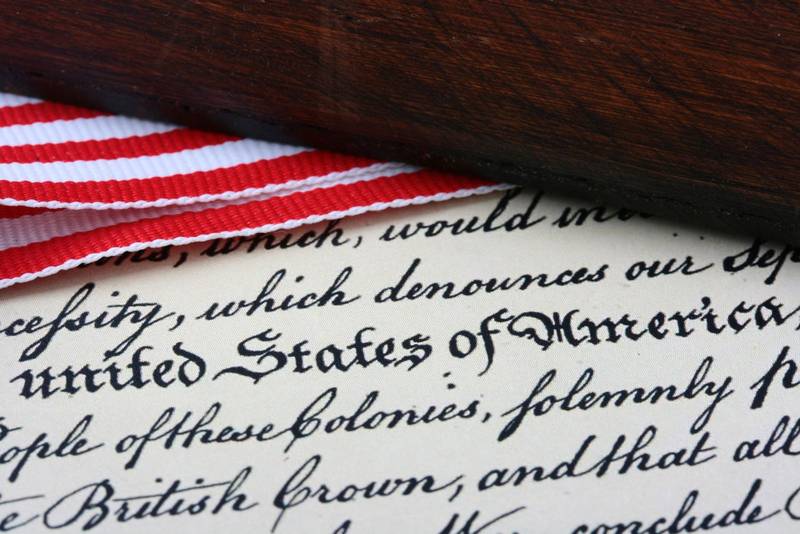 which, would
ceſsity, which denounces our Sep
united States of America,
eople of these Colonies, ſolemnly p
e British Crown, and that all
conclude